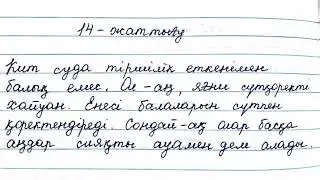 14 - жаттығу
Кит суда тіршілік еткенімен
балық емес. Ол - аң, яғни сүтқоректі
хайуан. Енесі балаларын сүтпен
қоректендіреді. Сондай-ақ олар басқа
аңдар сияқты ауамен дем алады.